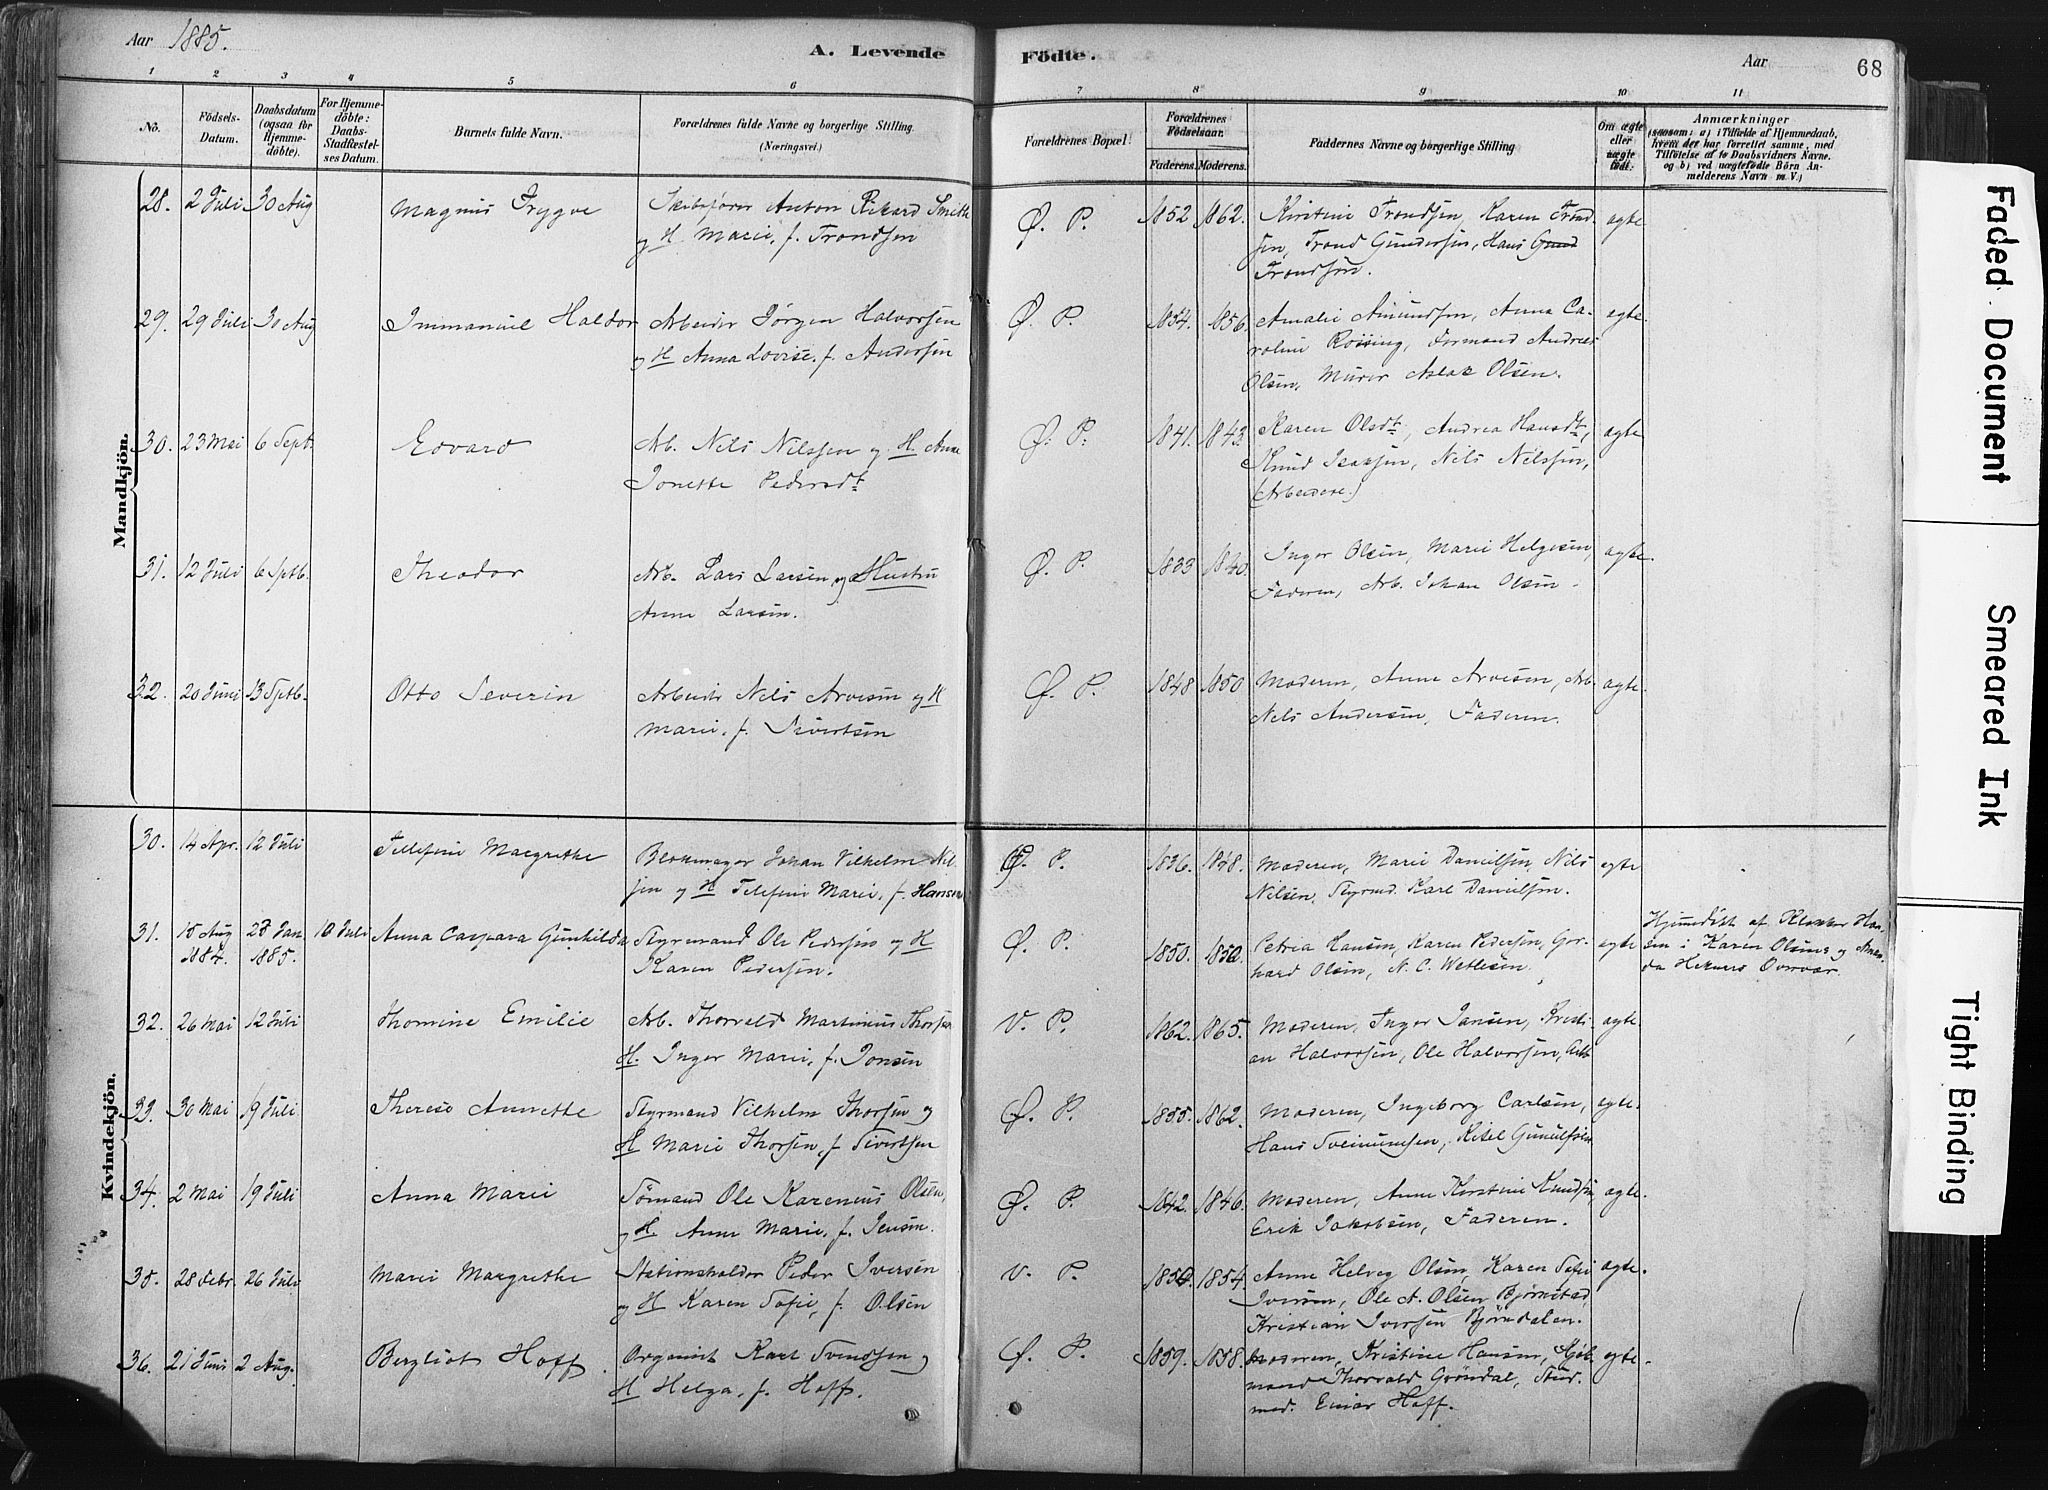 Aar 1885.
A. Levende
Födte.
Aar
68
1 2 3 4 5 6 7 8 9 10 11
No.
Födsels-
Datum.
Daabsdatum
(ogsaa for
Hjemme-
döbte).
For Hjemme-
döbte:
Daabs-
Stadfæstel-
ses Datum.
Barnets fulde Navn.
Forældrenes fulde Navne og borgerlige Stilling
(Næringsvei.)
Forældrenes Bopæl.
Forældrenes
Födselsaar.
Faderens. Moderens.
Faddernes Navne og borgerlige Stilling
Om ægte
eller
uægte
födt.
Anmærkninger
(saasom: a) i Tilfælde af Hjemmedaab,
hvem der har forrettet samme, med
Tilföielse af to Daabsvidners Navne.
og b) ved uægtefödte Börn An-
melderens Navn m. V.)
Mandkjön.
28. 2 Juli 30 Aug Magnus Trygve Skibsfører Anton Rikard Smith
og H Marie, f. Trondsen
Ø. P. 1852 1862. Kirstine Trondsen, Karen Trond
sen, Trond Gundersen, Hans Gund
Trondsen.
ægte
29. 29 Juli 30 Aug Immanuel Haldor Arbeider Jørgen Halvorsen
og H Anna Lovise, f. Andersen
Ø. P. 1854. 1856. Amalie Amundsen, Anna Ca-
roline Røising, Formand Andreas
Olsen, Murer Aslak Olsen.
ægte.
30. 23 Mai 6 Sept. Edvard Arb. Nils Nilssen og H. Anne
Jonette Pedersdt
Ø. P. 1841. 1843. Karen Olsdt, Andrea Hansdt,
Knud Isaksen, Nils Nilssen,
(Arbeidere.)
ægte
31. 12 Juli 6 Sptb. Theodor Arb. Lars Larsen og Hustru
Anne Larsen.
Ø. P. 1833 1840. Inger Olsen, Marie Helgesen,
Faderen, Arb. Johan Olsen.
ægte.
32. 20 Juni 13 Sptb. Otto Severin Arbeider Nils Arvesen og H
Marie, f. Sivertsen
Ø. P. 1848 1850 Moderen, Anne Arvesen, Arb.
Nils Andersen, Faderen.
ægte.
Kvindekjön.
30. 14 Apr. 12 Juli Tellefine Margrethe Blokmager Johan Vilhelm Nil-
sen og H Telefine Marie, f. Hansen
Ø. P. 1836. 1848. Moderen, Marie Danielsen, Nils
Nilsen, Styrmd. Karl Danielsen.
ægte
31. 15 Aug 1884. 28 Jan 1885. 10 Juli Anna Caspara Gunhilda Styrmand Ole Pedersen og H
Karen Pedersen.
Ø. P. 1850. 1850. Petrea Hansen, Karen Pedersen, Ger-
hard Olsen, N. C. Wetlesen
ægte
Hjemmedøbt af Klokker Han-
sen i Karen Olsens og Aman-
da Overvær.
32. 26 Mai 12 Juli Thomine Emilie Arb. Thorvald Martinius Thorsen
H. Inger Marie, f. Jonsen
V. P. 1862. 1865. Moderen, Inger Jansen, Kristi-
an Halvorsen, Ole Halvorsen, Arb
ægte.
33. 30 Mai 19 Juli Therese Annette Styrmand Vilhelm Thorsen og
H Marie Thorsen, f. Sivertsen
Ø. P. 1855. 1862. Moderen, Ingeborg Carlsen,
Hans Kitel Gunulfsen
ægte.
34. 2 Mai 19 Juli Anna Marie Sømand Ole Karenius Olsen,
og H. Anne Marie, f. Jensen.
Ø. P. 1842. 1846. Moderen, Anne Kirstine Knudsen,
Erik Jakobsen, Faderen.
ægte.
35. 28 Febr. 26 Juli Marie Margrethe Stationsholder Peder Iversen
og H Karen Sofie, f. Olsen
V. P. 1850. 1854. Anne Helveg Olsen, Karen Sofie
Iversen, Ole A. Olsen Bjørnstad,
Kristian Iversen Bjørndalen.
ægte.
36. 21 Juni 2 Aug. Bergliot Hoff Organist Karl Svendsen og
H Helga, f. Hoff.
Ø. P. 1859. 1858. Moderen, Kristine Hansen, Kjøb-
mand Thorvald Grøndal, Stud.
med. Einar Hoff.
ægte.
Faded Document
Smeared Ink
Tight Binding